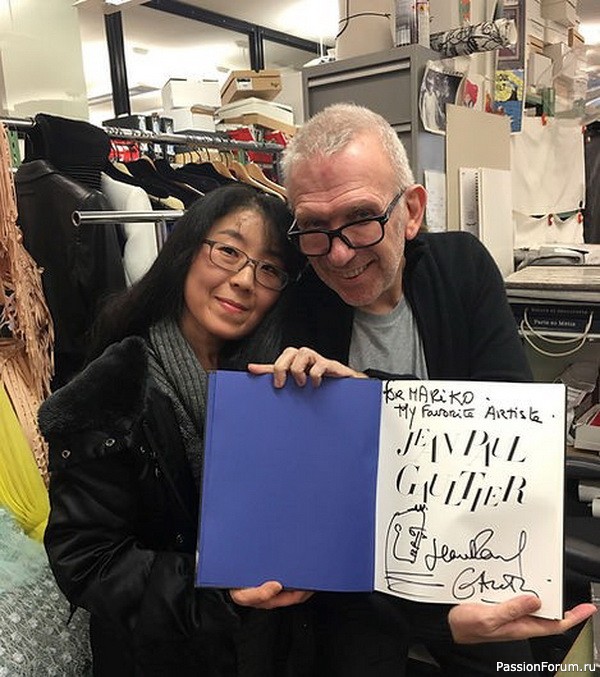 for MARiKO.
My FavoRiTE ARTiSTE.
JEAN PAUL
GAULTIER
Jean Paul
GAULTIER
Paris au Métier
PassionForum.ru